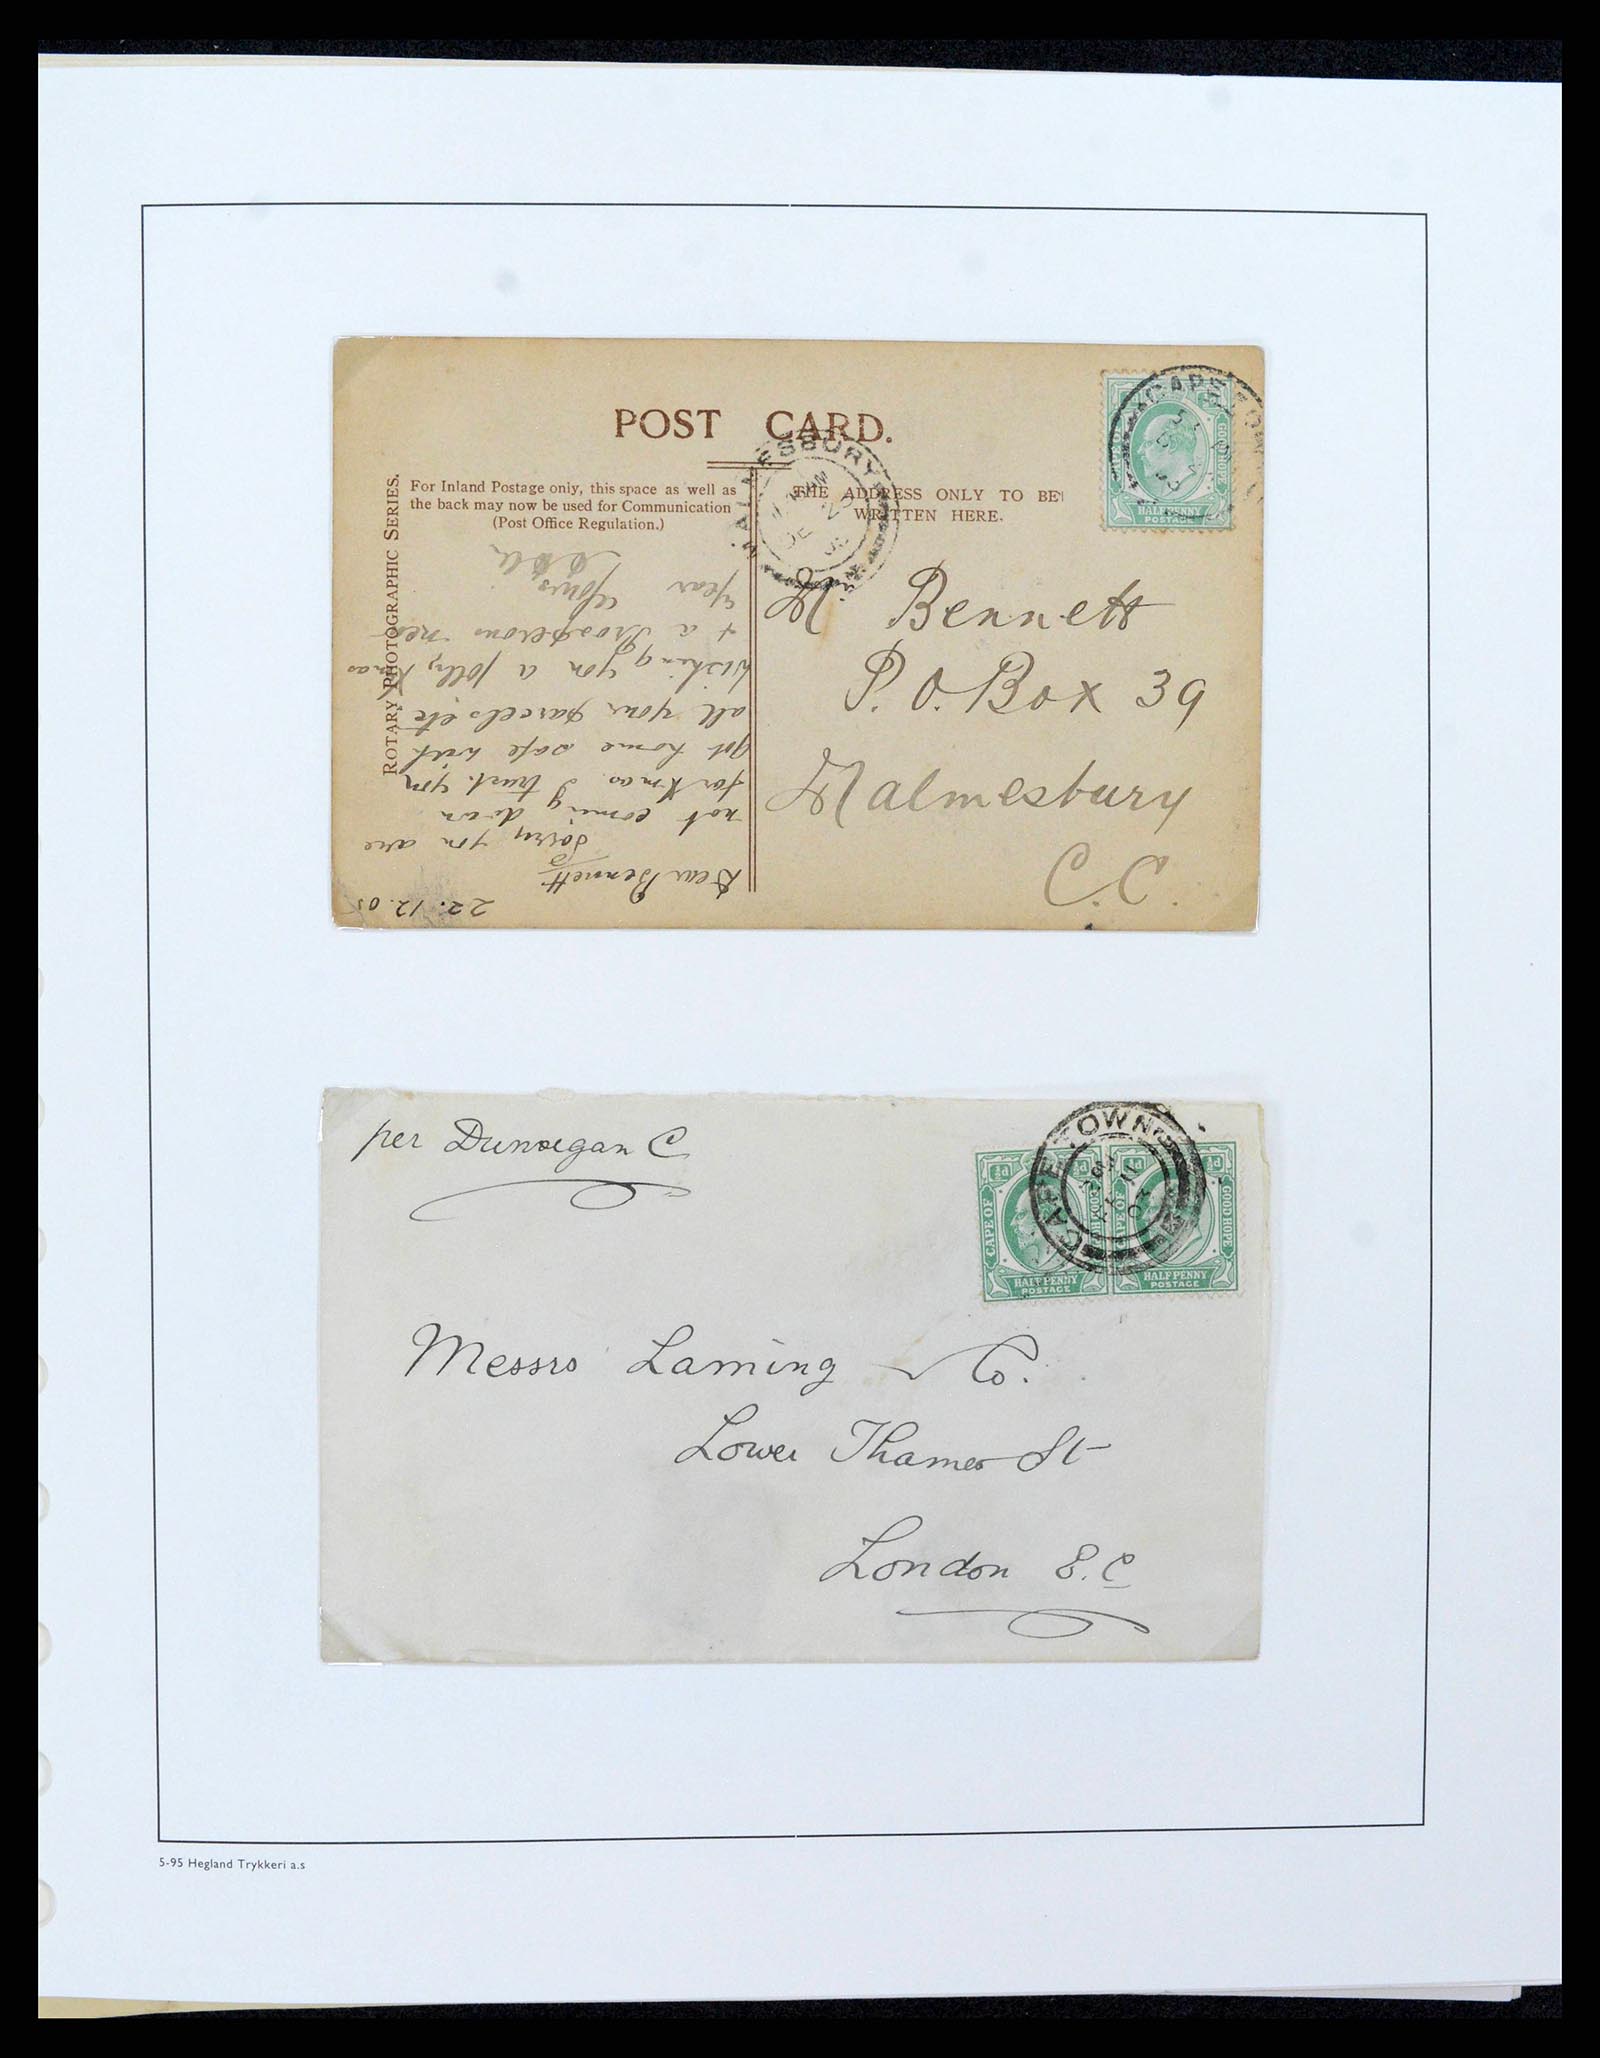 POST CARD.
ROTARY PHOTOGRAPHIC SERIES.
For Inland Postage only, this space as well as
the back may now be used for Communication
(Post Office Regulation.)
THE ADDRESS ONLY TO BE
WRITTEN HERE.
MALMESBURY
DE 23
05
CAPE TOWN
CAPE OF GOOD HOPE
HALFPENNY
POSTAGE
Mr Bennett
P.O. Box 39
Malmesbury
C.C.
22.12.05
Dear Bennett
Sorry you are
not coming down
for Xmas. I trust you
got home safe with
all your parcels etc
Wishing you a jolly Xmas
+ a Prosperous new
year
Yours
per Dunvegan C
CAPE TOWN
½d ½d ½d ½d
CAPE OF GOOD HOPE
CAPE OF GOOD HOPE
HALFPENNY
POSTAGE
HALFPENNY
POSTAGE
Messrs Laming & Co.
Lower Thames St
London E.C
5-95 Hegland Trykkeri a.s